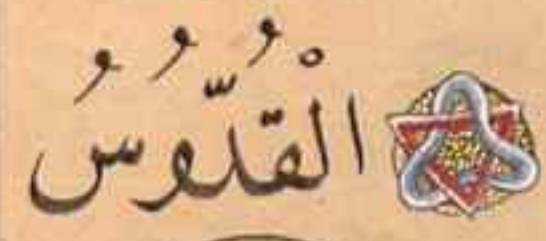 الْقُدُّوسُ